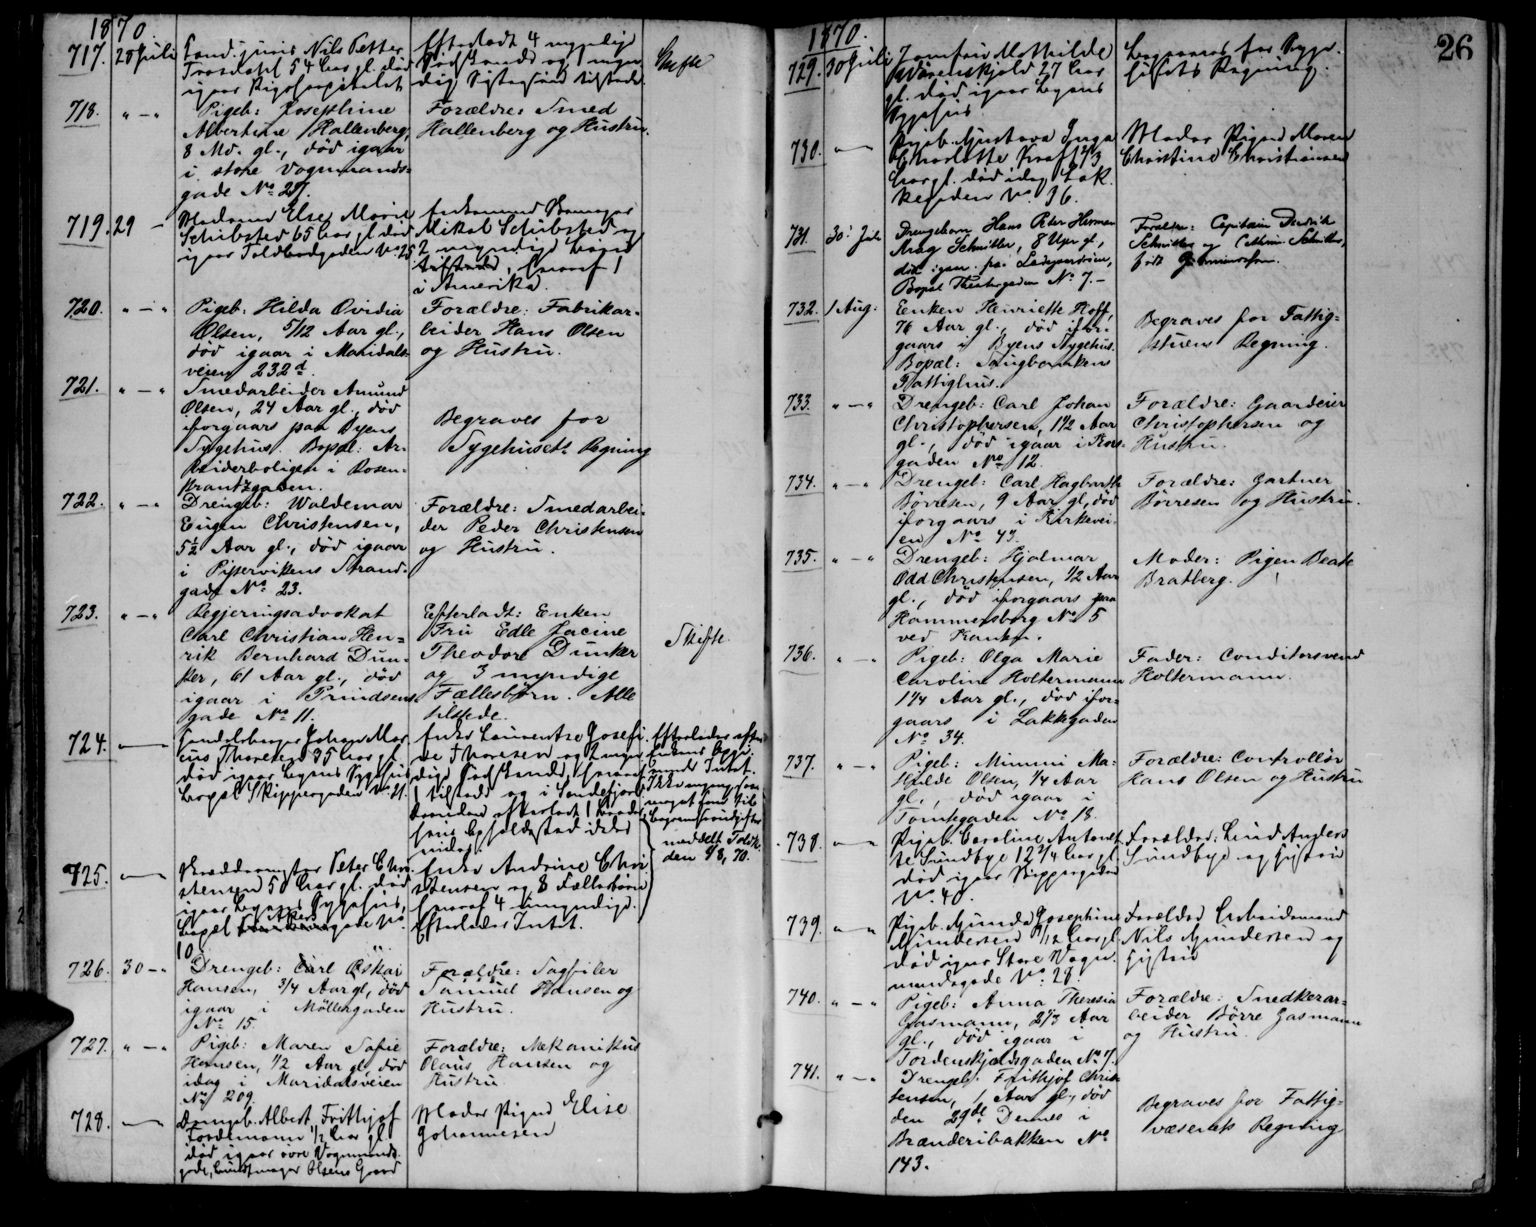 1870.
717. 28 Juli
Nils Petter
54 Aar gl. død
igaar Rigshospitalet
Efterladt 4 myndige
Skifte
718. " — "
Pigeb: Josephine
Albertine Hallenberg,
8 Md. gl., død igaar
i store Vognmands-
gade No 27.
Forældre: Smed
Hallenberg og Hustru.
719. 29 —
Madame Else Marie
Schibsted 65 Aar gl. død
igaar Toldbodgaden No 25
Enkemand
Mikal Schibsted og
2 myndige
tilstede, hvoraf 1
i Amerika.
720. " — "
Pigeb: Hilda Ovidia
Olsen, 5/12 Aar gl.,
død igaar i Maridals-
veien 232d.
Forældre: Fabrikar-
beider Hans Olsen
og Hustru.
721. " — "
Smedarbeider Amund
Olsen, 24 Aar gl., død
iforgaars paa Byens
Sygehus. Bopæl: Ar-
beiderboligen i Rosen-
krantzgaden.
Begraves for
Sygehusets Regning
722. " — "
Drengeb: Waldemar
Eugen Christensen,
5½ Aar gl., død igaar
i Pipervikens Strand-
gade No 23.
Forældre: Smedarbei-
der Peder Christensen
og Hustru.
723. " — "
Regjeringsadvokat
Carl Christian Hen-
rik Bernhard Dun-
ker, 61 Aar gl., død
igaar i Prindsens
gade No 11.
Efterladt: Enken
Fru Edle Jacine
Theodore Dunker
og 3 myndige
Fællesbørn. Alle
tilstede.
Skifte
724. —
Johan Mar-
cus Thoresen 35 Aar gl.
død igaar Byens Sygehus
Bopæl Skippergaden No 21.
Enke Laurentze Josefi-
ne Thoresen og
1 tilstede og i Sandefjord
Efterlades efter
Intet.
meddelt Politik.
den 1/8, 70.
725. —
Peter Chri-
stensen 50 Aar gl. død
igaar Byens Sygehus,
Bopæl
10.
Enke Andrine Chri-
stensen og 8 Fællesbørn
hvoraf 4 umyndige.
Efterlades Intet.
726. 30 — "
Drengeb: Carl Oskar
Hansen, 3/4 Aar gl., død
igaar i Möllergaden
No 15.
Forældre: Sagfiler
Samuel Hansen og
Hustru.
727. " — "
Pigeb: Maren Sofie
Hansen, 1/2 Aar gl., død
idag i Maridalsveien
No 209.
Forældre: Mekanikus
Olaus Hansen og
Hustru.
728. —
Drengeb. Albert Frithjof
1/2 Aar gl.
død igaar øvre Vognmands-
gade, Olsens Gaard
Moder Pigen Elise
Johannesen
1870.
26
729. 30 Juli
Jomfru Mathilde
Wærenskjold 27 Aar
gl. død igaar Byens
Sygehus
Begraves for Syge-
husets Regning.
730. — "
Pigeb. Gustava Inga
Charlotte 1 2/3
Aar gl. død idag Lak-
kegaden No. 36.
Moder Pigen Maren
Christine Christiansen
731. 30. Juli
Drengebarn Hans Peter Herman
Aag Schnitler, 8 Uger gl.,
død igaar paa Ladegaardsøen,
Bopæl Theatergaden No 7. —
Forældre: Capitain Diedrik
Schnitler og Cathrine Schnitler,
født
732. 1 Aug.
Enken Henriette Hoff,
76 Aar gl., død ifor-
gaars i Byens Sygehus.
Bopæl: Saugbankens
Fattighus.
Begraves for Fattig-
stuens Regning.
733. " — "
Drengeb: Carl Johan
Christophersen, 1½ Aar
gl., død igaar i Kors-
gaden No 12.
Forældre: Gaardeier
Christophersen og
Hustru.
734. " — "
Drengeb: Carl Hagbarth
Børresen, 9 Aar gl., død
iforgaars i Kirkevei-
en No 43.
Forældre: Gartner
Børresen og Hustru.
735. " — "
Drengeb: Hjalmar
Odd Christensen, 1/2 Aar
gl., død iforgaars paa
Hammersborg No 5
ved Kanken.
Moder: Pigen Beate
Bratberg.
736. " — "
Pigeb: Olga Marie
Caroline Holtermann
1 1/4 Aar gl., død ifor-
gaars i Lakkegaden
No 34.
Fader: Conditorsvend
Holtermann.
737. " — "
Pigeb: Mimmi Ma-
thilde Olsen, 1/4 Aar
gl., død igaar i
Tomtegaden No 18.
Forældre: Controllør
Hans Olsen og Hustru
738. " — "
Pigeb. Caroline Antonet-
te Sundbye 12 3/4 Aar gl.
død igaar Skippergaden
No. 40.
Forældre: Anders
Sundbye og Hustru
739. " — "
Pigeb. Gunda Josephine
Gundersen /12 Aar gl.
død igaar Store Vogn-
mandsgade No. 28.
Forældre Arbeidsmand
Nils Gundersen og
Hustru
740. " — "
Pigeb: Anna Theresia
Gasmann, 2 1/3 Aar
gl., død igaar i
Tordenskjoldsgaden No 7.
Forældre: Snedkerar-
beider Børre Gasmann
og Hustru.
741. " — "
Drengeb: Frithjof Chris-
tensen, 1 Aar gl., død
den 29de Dennes i
Brænderibakken No
143.
Begraves for Fattig-
væsenets Regning